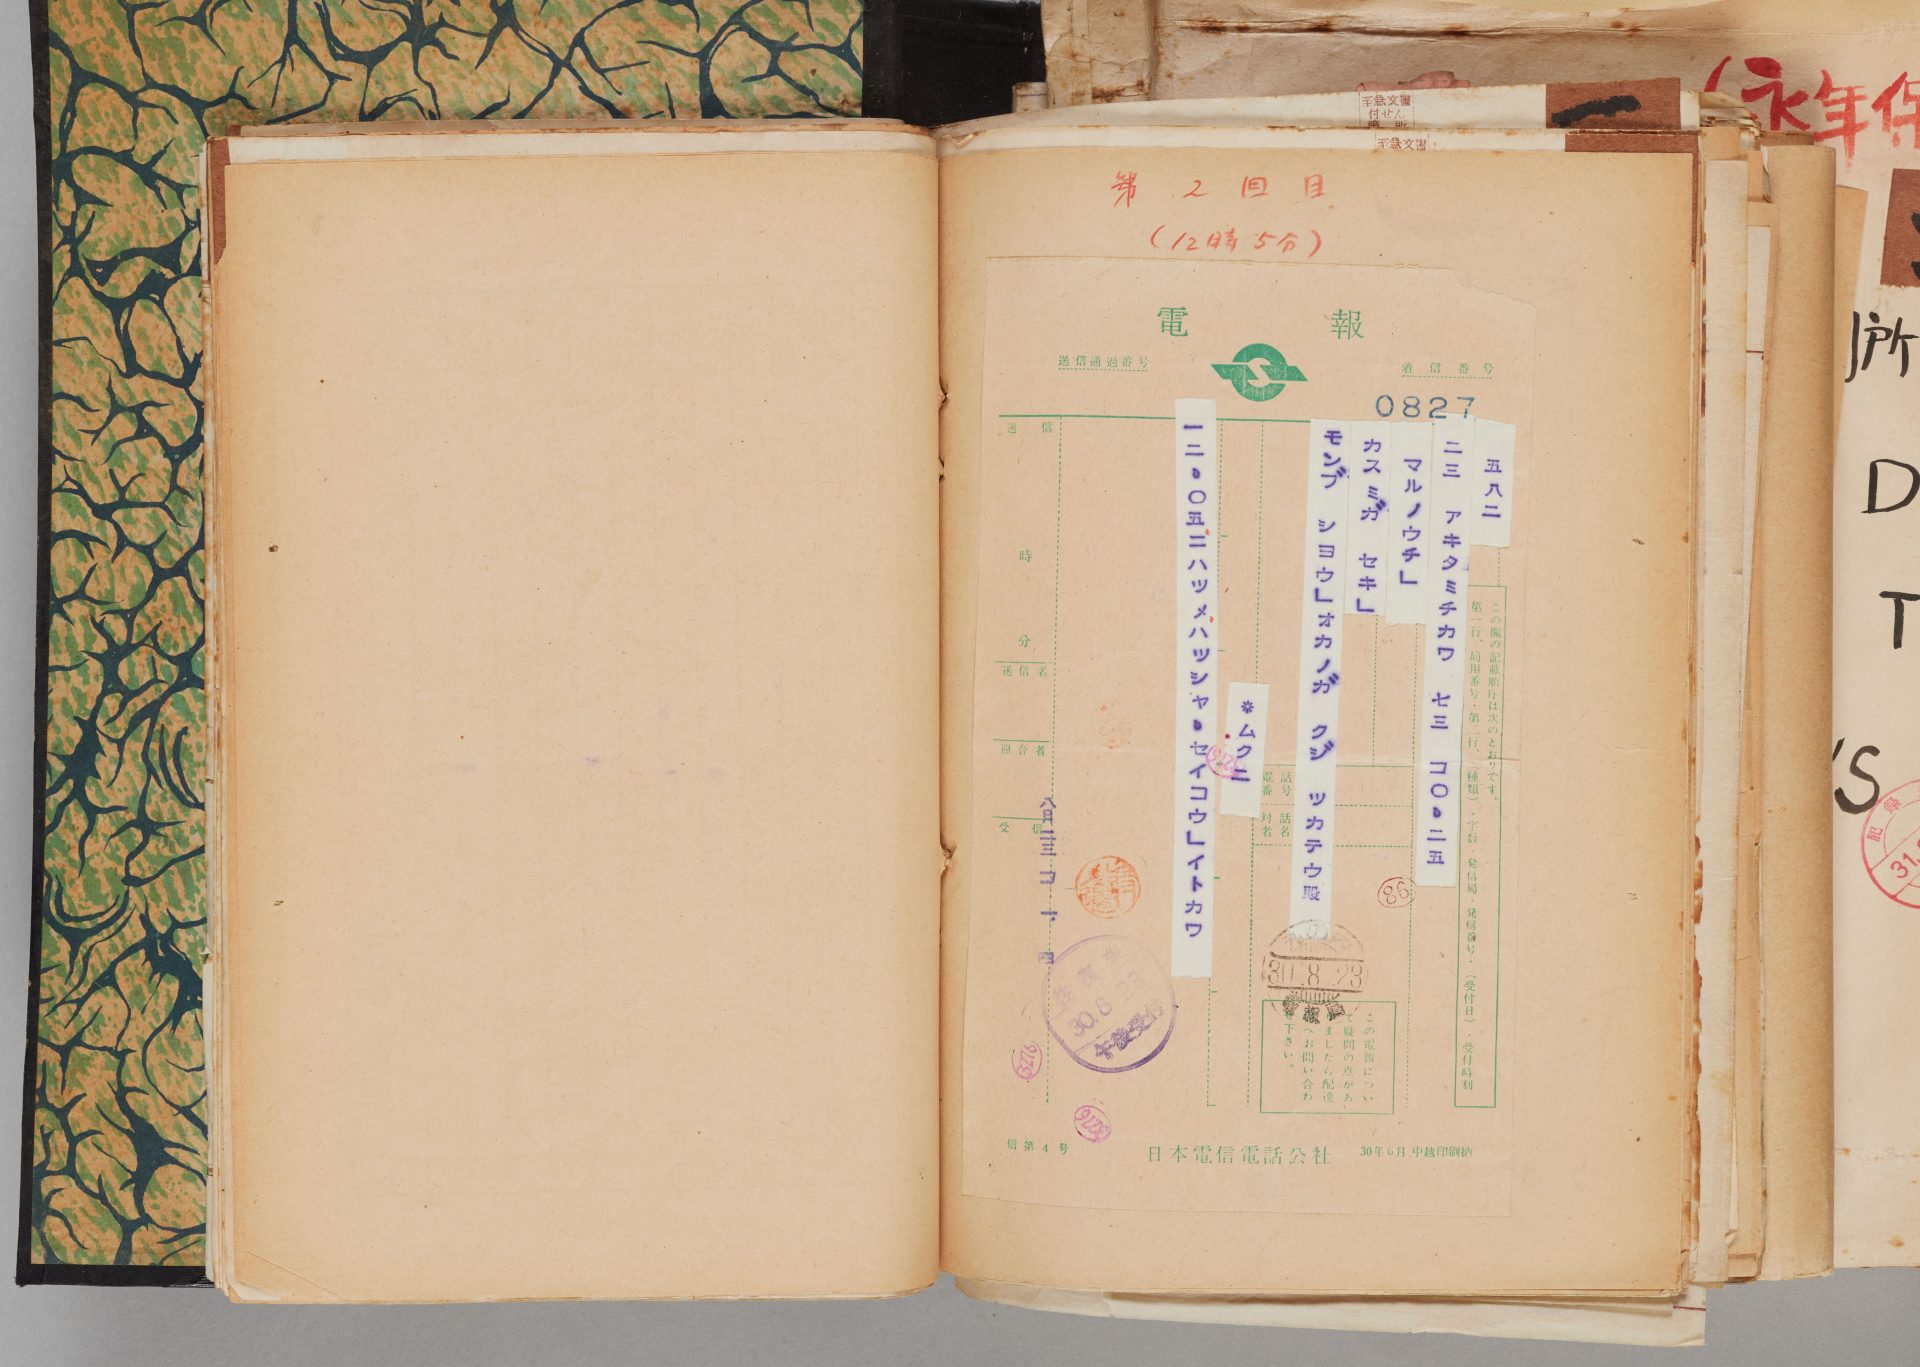 至急文書
付せん
至急文書
(永年保
第2回目
(12時5分)
電報
送信通過番号
着信番号
0827
五八二
二三 アキタミチカワ 七三 コ〇、二五
マルノウチ」
カスミガ セキ」
モンブ シヨウ」オカノガ クジ ツカテウ殿
*ムクニ
一二、〇五ニハツメハツシヤ、セイコウ」イトカワ
この欄の記載順序は次のとおりです。
第一行、局用番号・第二行、(種類)・字数・発信局・発信番号・(受付日)・受付時刻
送信
時
分
送信者
照合者
受信
八月二三 コ 一、四
電話番号
対話者名
86
30.8.23
30.8.23
午後受付
この電報につい
て疑問の点があ
ましたら配達
へお問い合わ
せ下さい。
3276
3276
信第4号
日本電信電話公社
30年6月 中越印刷納
所
D
T
'S
記録
31.